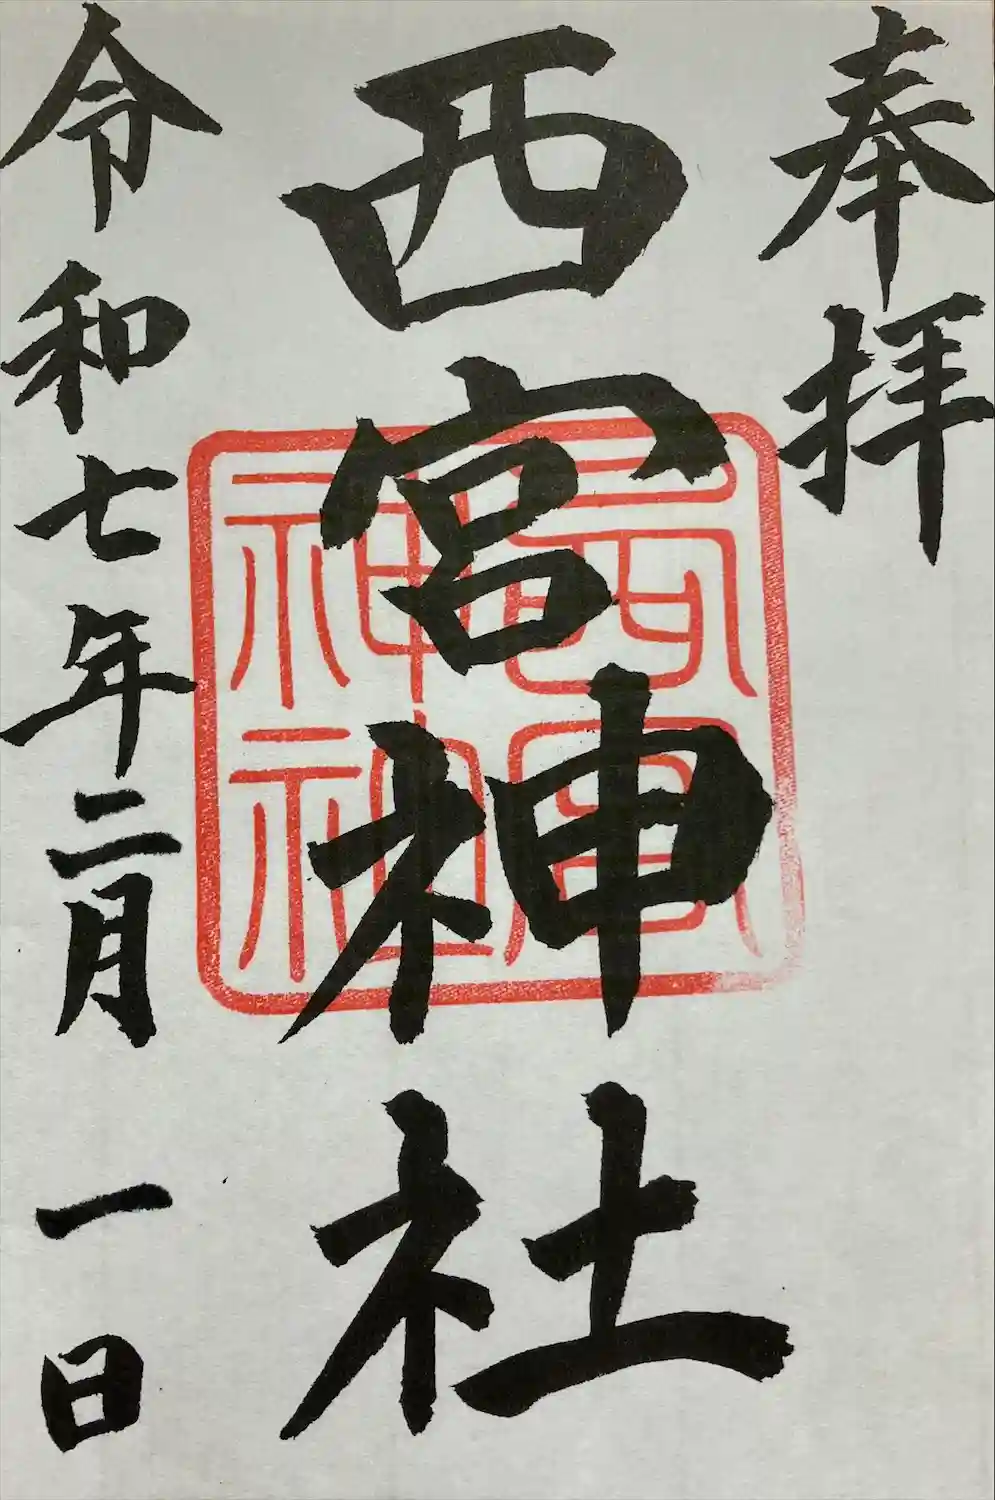 奉拝
西宮神社
西宮神社
令和七年二月一日